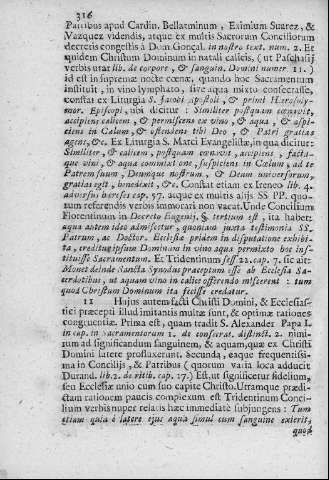 316
Patribus apud Cardin. Bellarminum, Eximium Suarez, &
Vazquez videndis, atque ex multis Sacrorum Conciliorum
decretis congestis à Dom Gonçal. in nostro text. num. 2. Et
quidem Christum Dominum in natali calicis, (ut Paschasij
verbis utar lib. de corpore, & sanguin. Domini numer 11.)
id est in supremæ nocte cœnæ, quando hoc Sacramentum
instituit, in vino lymphato, sive aqua mixto confecrasse,
constat ex Liturgia S. Iacobi Apostoli, & primi Hierosoly-
mor. Episcopi, ubi dicitur: Similiter postquam cœnavit,
accipiens calicem, & permiscens ex vino, & aqua, & aspi-
ciens in Cælum, & ostendens tibi Deo, & Patri gratias
agens, &c. Ex Liturgia S. Marci Evangelistæ, in qua dicitur:
Similiter, & calicem, postquam cœnavit, accipiens,
vino, & aqua suspiciens in Cælum, ad te
Patrem suum, Deumque nostrum, & Deum universorum,
gratias egit, benedixit, &c. Constat etiam ex Ireneo lib. 4.
adversus hæreses cap. 57. atque ex multis alijs SS PP. quo-
rum referendis verbis immorari non vacat. Unde Concilium
Florentinum in Decreto Eugenij, §. tertium est, ita habet:
aqua autem ideo admiscetur, quoniam juxta testimonia SS.
Patrum, ac Doctor. Ecclesiæ pridem in disputatione exhibi-
ta, creditur ipsum Dominum in vino aqua permixto hoc insti-
tuisse Sacramentum. Et Tridentinum sess 22. cap. 7. sic ait:
Monet deinde Sancta Synodus præceptum esse ab Ecclesia Sa-
cerdotibus, ut aquam vino in calice offerendo miscerent: tum
quod Christum Dominum ita fecisse credatur.
11 Hujus autem facti Christi Domini, & Ecclesiasti-
tici præcepti illud imitantis multæ sunt, & optimæ rationes
congruentiæ. Prima est, quam tradit S. Alexander Papa I.
in cap. in Sacramentorum 1. de consecrat. distinct. 2. nimi-
rum ad significandum sanguinem, & aquam, quæ ex Christi
Domini latere profluxerunt. Secunda, eaque frequentissi-
ma in Concilijs, & Patribus (quorum varia loca adducit
Durand. lib. 2. de ritib. cap. 27.) Est, ut significetur fidelium,
seu Ecclesiæ unio cum suo capite Christo. Utramque præ-
ctam rationem paucis complexum est Tridentinum Conci-
lium verbis nuper relatis hæc immediatè subjungens: Tum
etiam quia è latere ejus aqua simul cum sanguine exierit,
quod